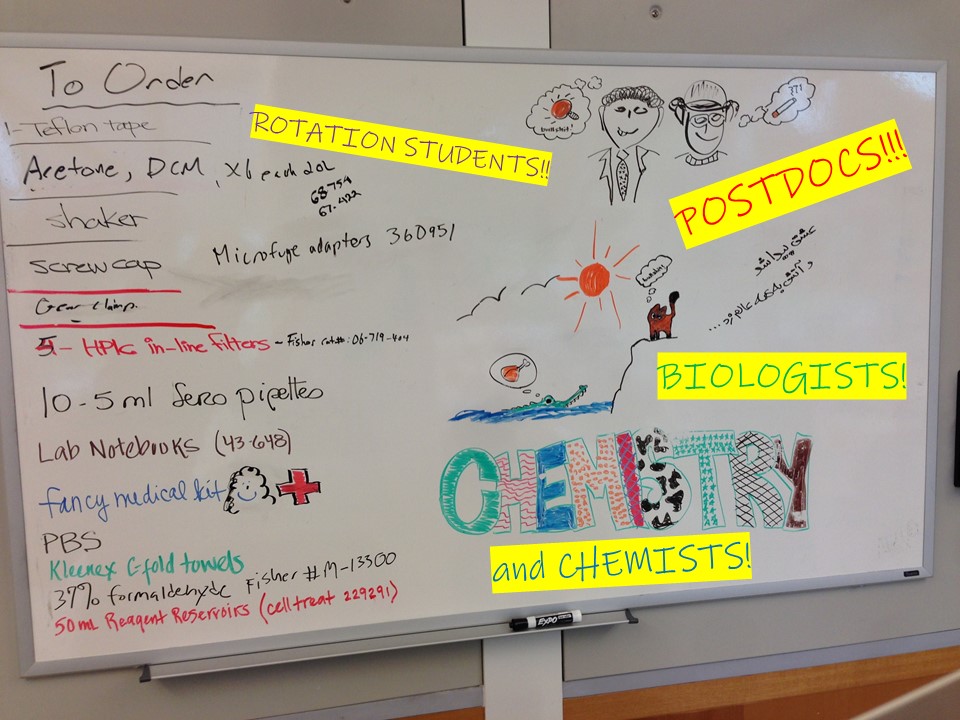 To Order
1-Teflon tape
Acetone, DCM, X6 each 20L
68754
67-422
shaker
Microfuge adapters 360951
screw cap
Gear clamp.
5 - HPLC in-line filters - Fisher cat#: 06-719-404
10-5ml Sero pipettes
Lab Notebooks (43-648)
fancy medical kit
PBS
Kleenex C-fold towels
37% formaldehyde Fisher #M-13300
50mL Reagent Reservoirs (celltreat 229291)
ROTATION STUDENTS!!
bullshit!
???
POSTDOCS!!!
عشق پیدا شد
و آتش به همه عالم زد...
BIOLOGISTS!
CHEMISTRY
and CHEMISTS!
EXPO